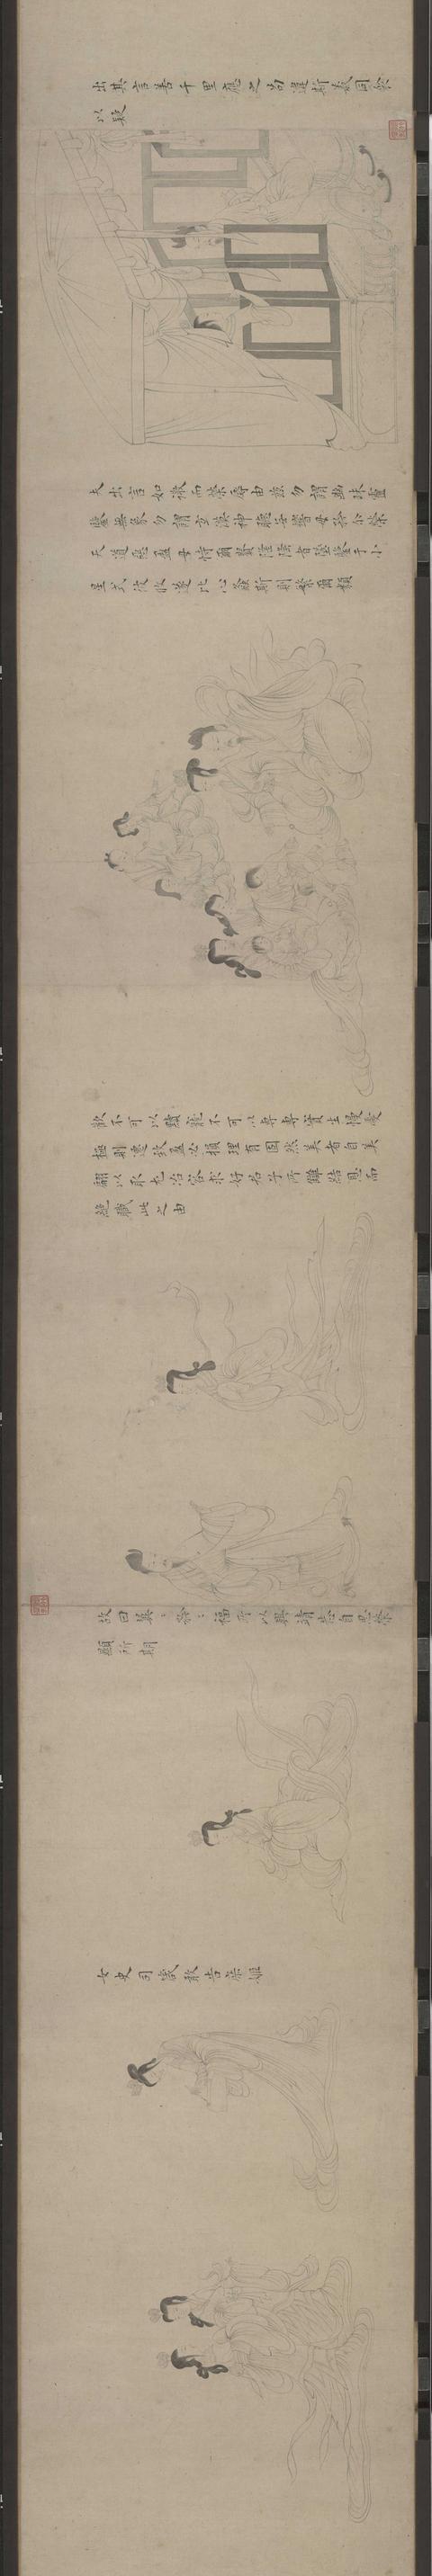 出其言善千里應之苟違斯義同衾
以疑
夫出言如微而榮辱由茲勿謂幽昧靈
鑒無象勿謂玄漠神聽無響無矜尔榮
天道惡盈毋恃爾貴隆隆者墜鑒于小
星戒彼攸遂比心螽斯則繁爾類
歡不可以黷寵不可以專專實生慢愛
極則遷致盈必損理有固然美者自美
翩以取尤冶容求好君子所讎結恩而
絕職此之由
故曰翼〻矜〻福所以興靖恭自思榮
顯所期
女史司箴敢告庶姬